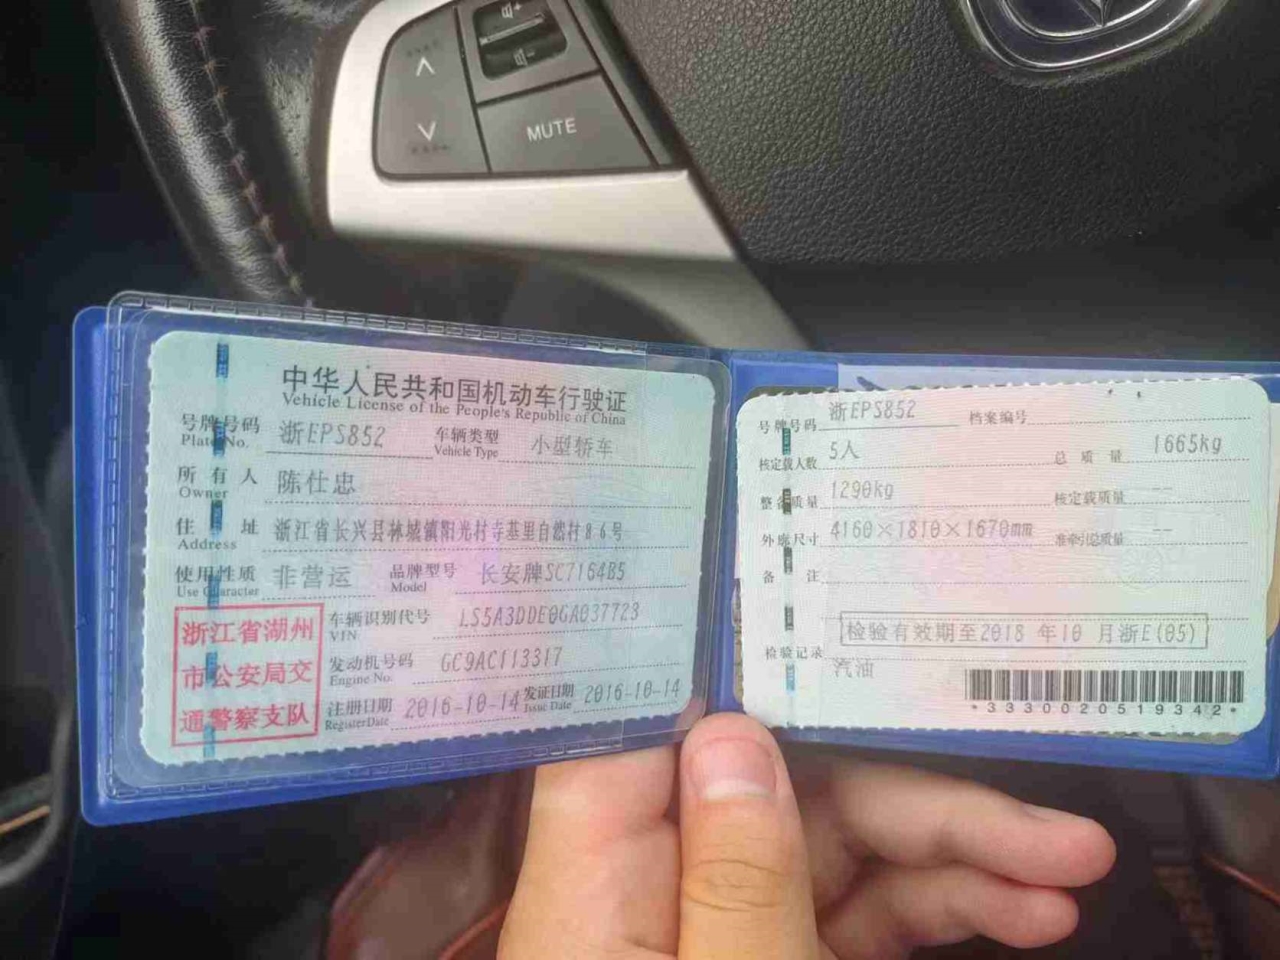 MUTE
中华人民共和国机动车行驶证
Vehicle License of the People's Republic of China
号牌号码 浙EPS852 车辆类型 小型轿车
Plate No. Vehicle Type
所有人 陈仕忠
Owner
住址 浙江省长兴县林城镇阳光村寺基里自然村86号
Address
使用性质 非营运 品牌型号 长安牌SC7164B5
Use Character Model
浙江省湖州
市公安局交
通警察支队
车辆识别代号 LS5A3DDE0GA037723
VIN
发动机号码 GC9AC113317
Engine No.
注册日期 2016-10-14 发证日期 2016-10-14
Register Date Issue Date
号牌号码 浙EPS852 档案编号
核定载人数 5人 总质量 1665kg
整备质量 1290kg 核定载质量 --
外廓尺寸 4160×1810×1670mm 准牵引总质量 --
备注
检验有效期至2018 年10 月浙E(05)
检验记录
汽油
*3330020519342*